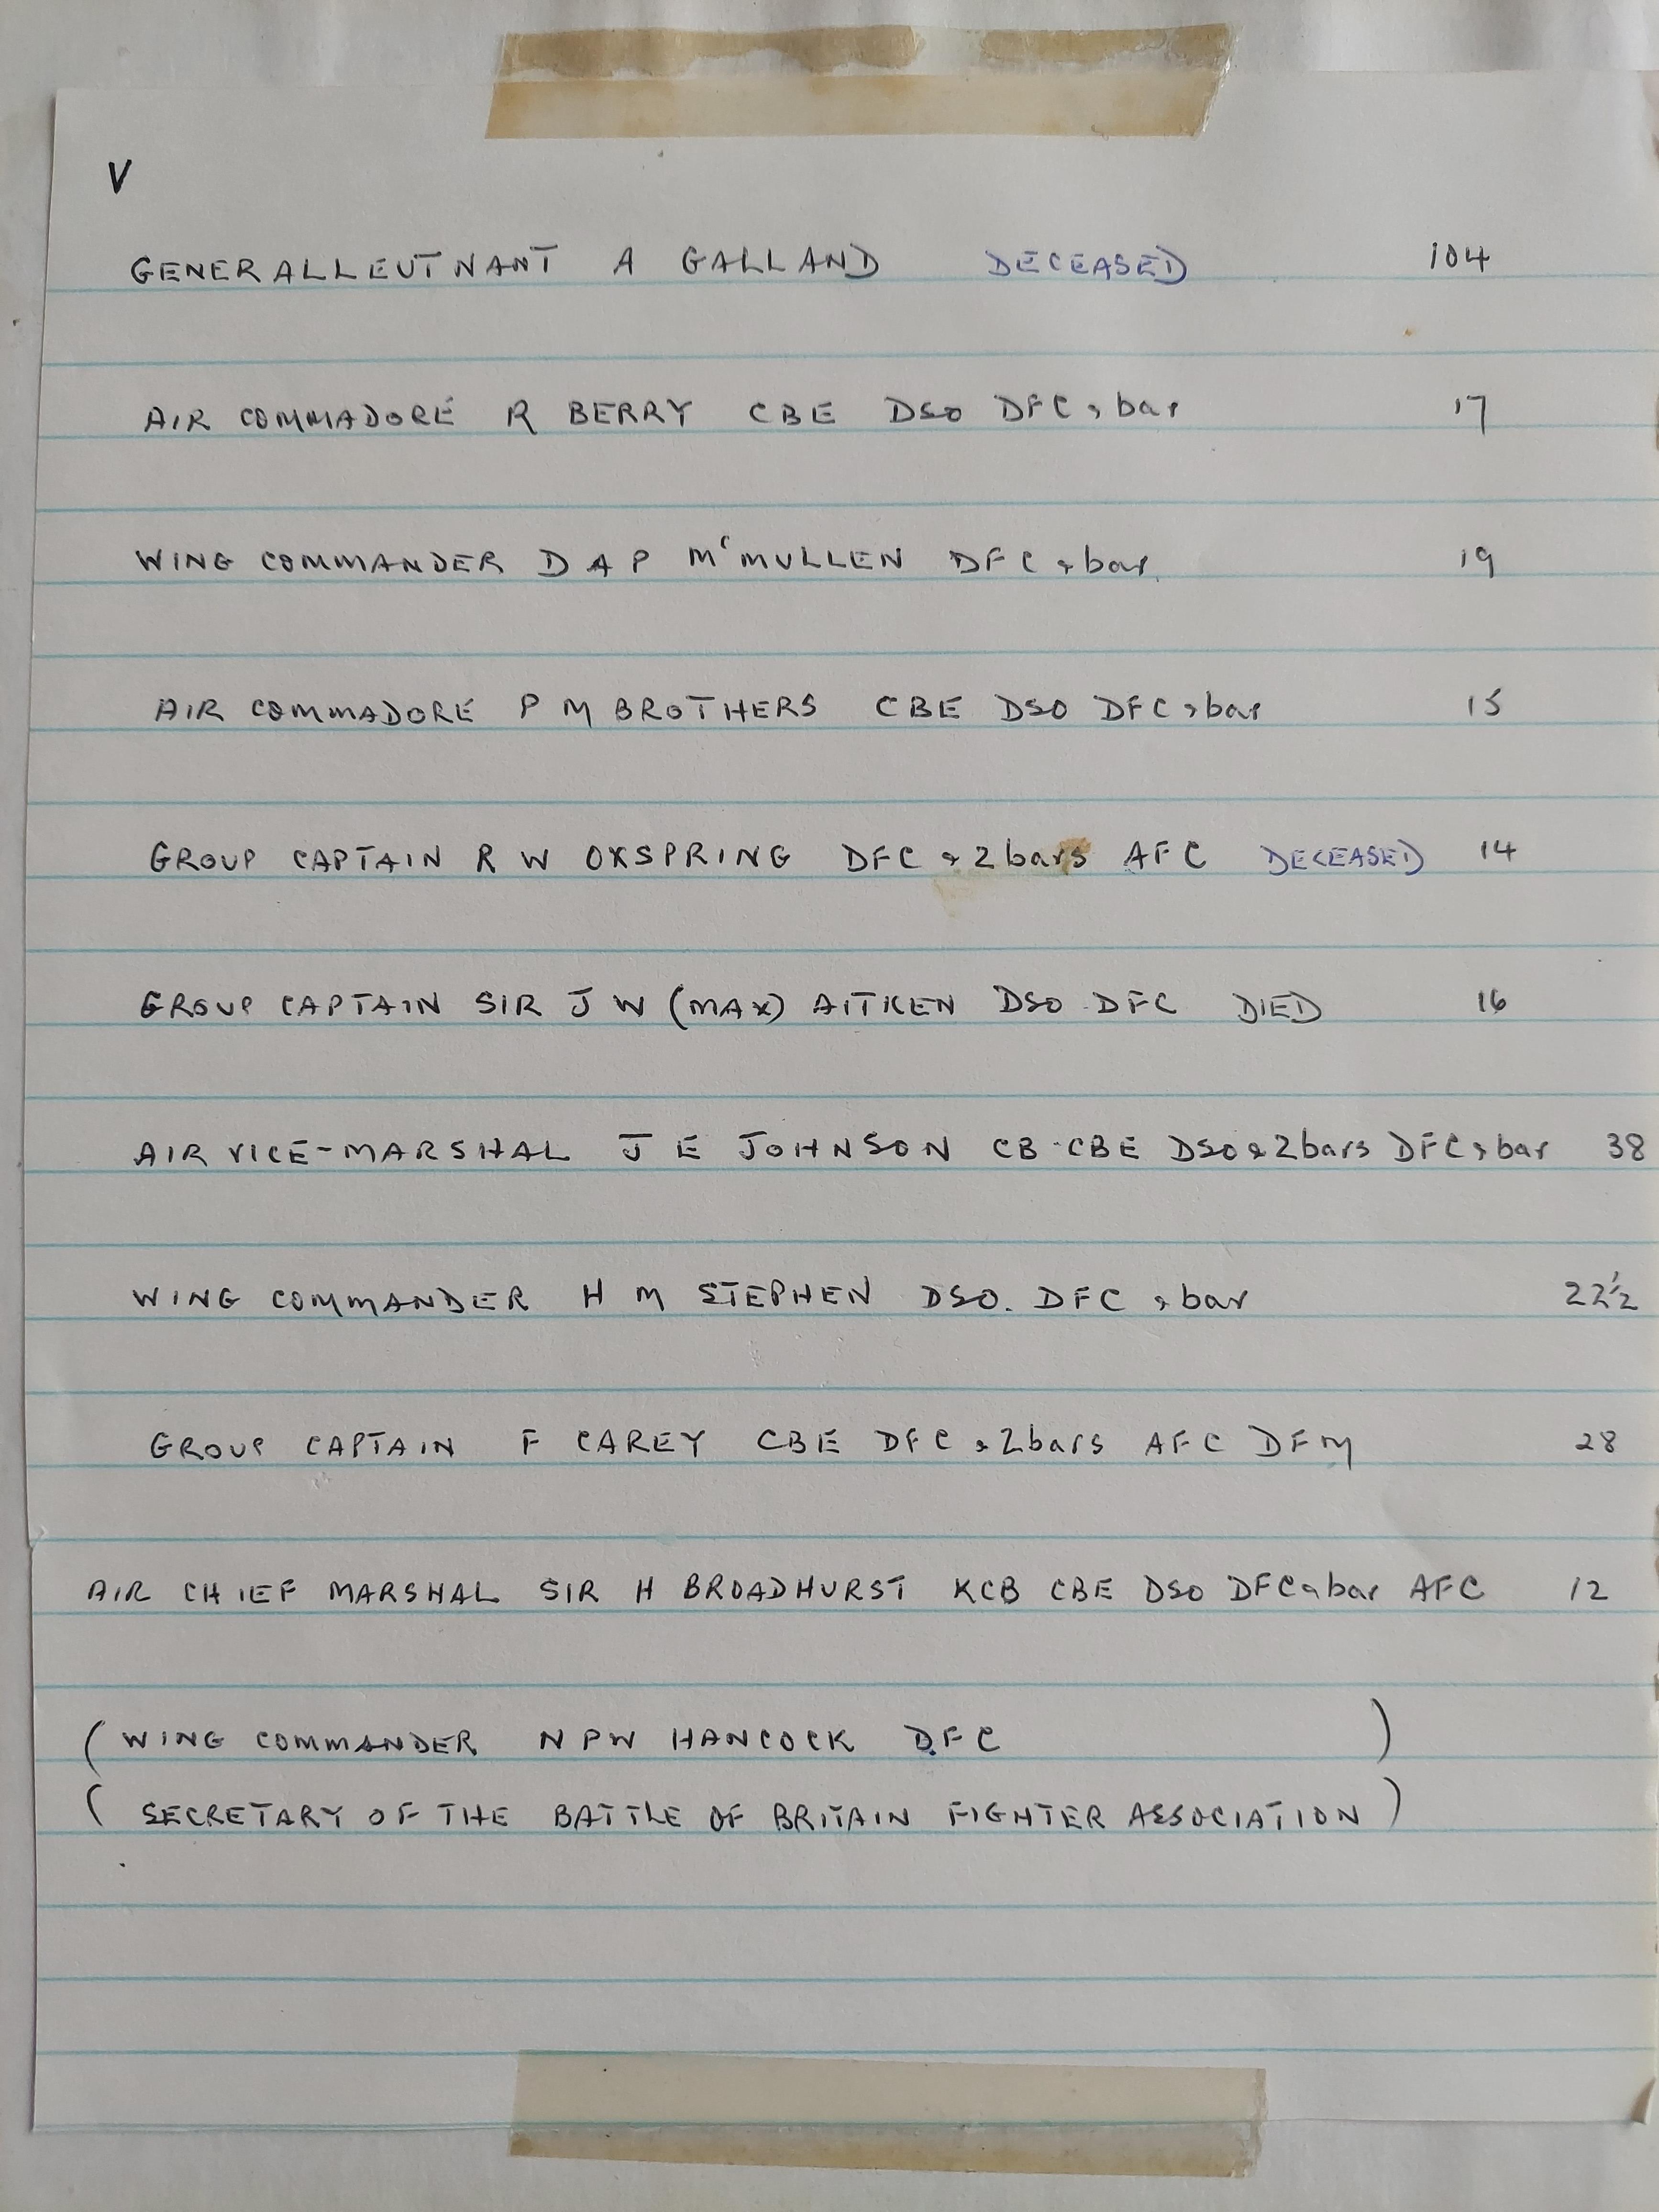 V
GENERALLEUTNANT A GALLAND DECEASED 104
AIR COMMADORE R BERRY CBE DSO DFC & bar 17
WING COMMANDER D A P McMULLEN DFC & bar 19
AIR COMMADORE P M BROTHERS CBE DSO DFC & bar 15
GROUP CAPTAIN R W OXSPRING DFC & 2 bars AFC DECEASED 14
GROUP CAPTAIN SIR J W (MAX) AITKEN DSO DFC DIED 16
AIR VICE-MARSHAL J E JOHNSON CB CBE DSO & 2 bars DFC & bar 38
WING COMMANDER H M STEPHEN DSO. DFC & bar 22½
GROUP CAPTAIN F CAREY CBE DFC & 2 bars AFC DFM 28
AIR CHIEF MARSHAL SIR H BROADHURST KCB CBE DSO DFC & bar AFC 12
(WING COMMANDER N P W HANCOCK DFC )
( SECRETARY OF THE BATTLE OF BRITAIN FIGHTER ASSOCIATION )